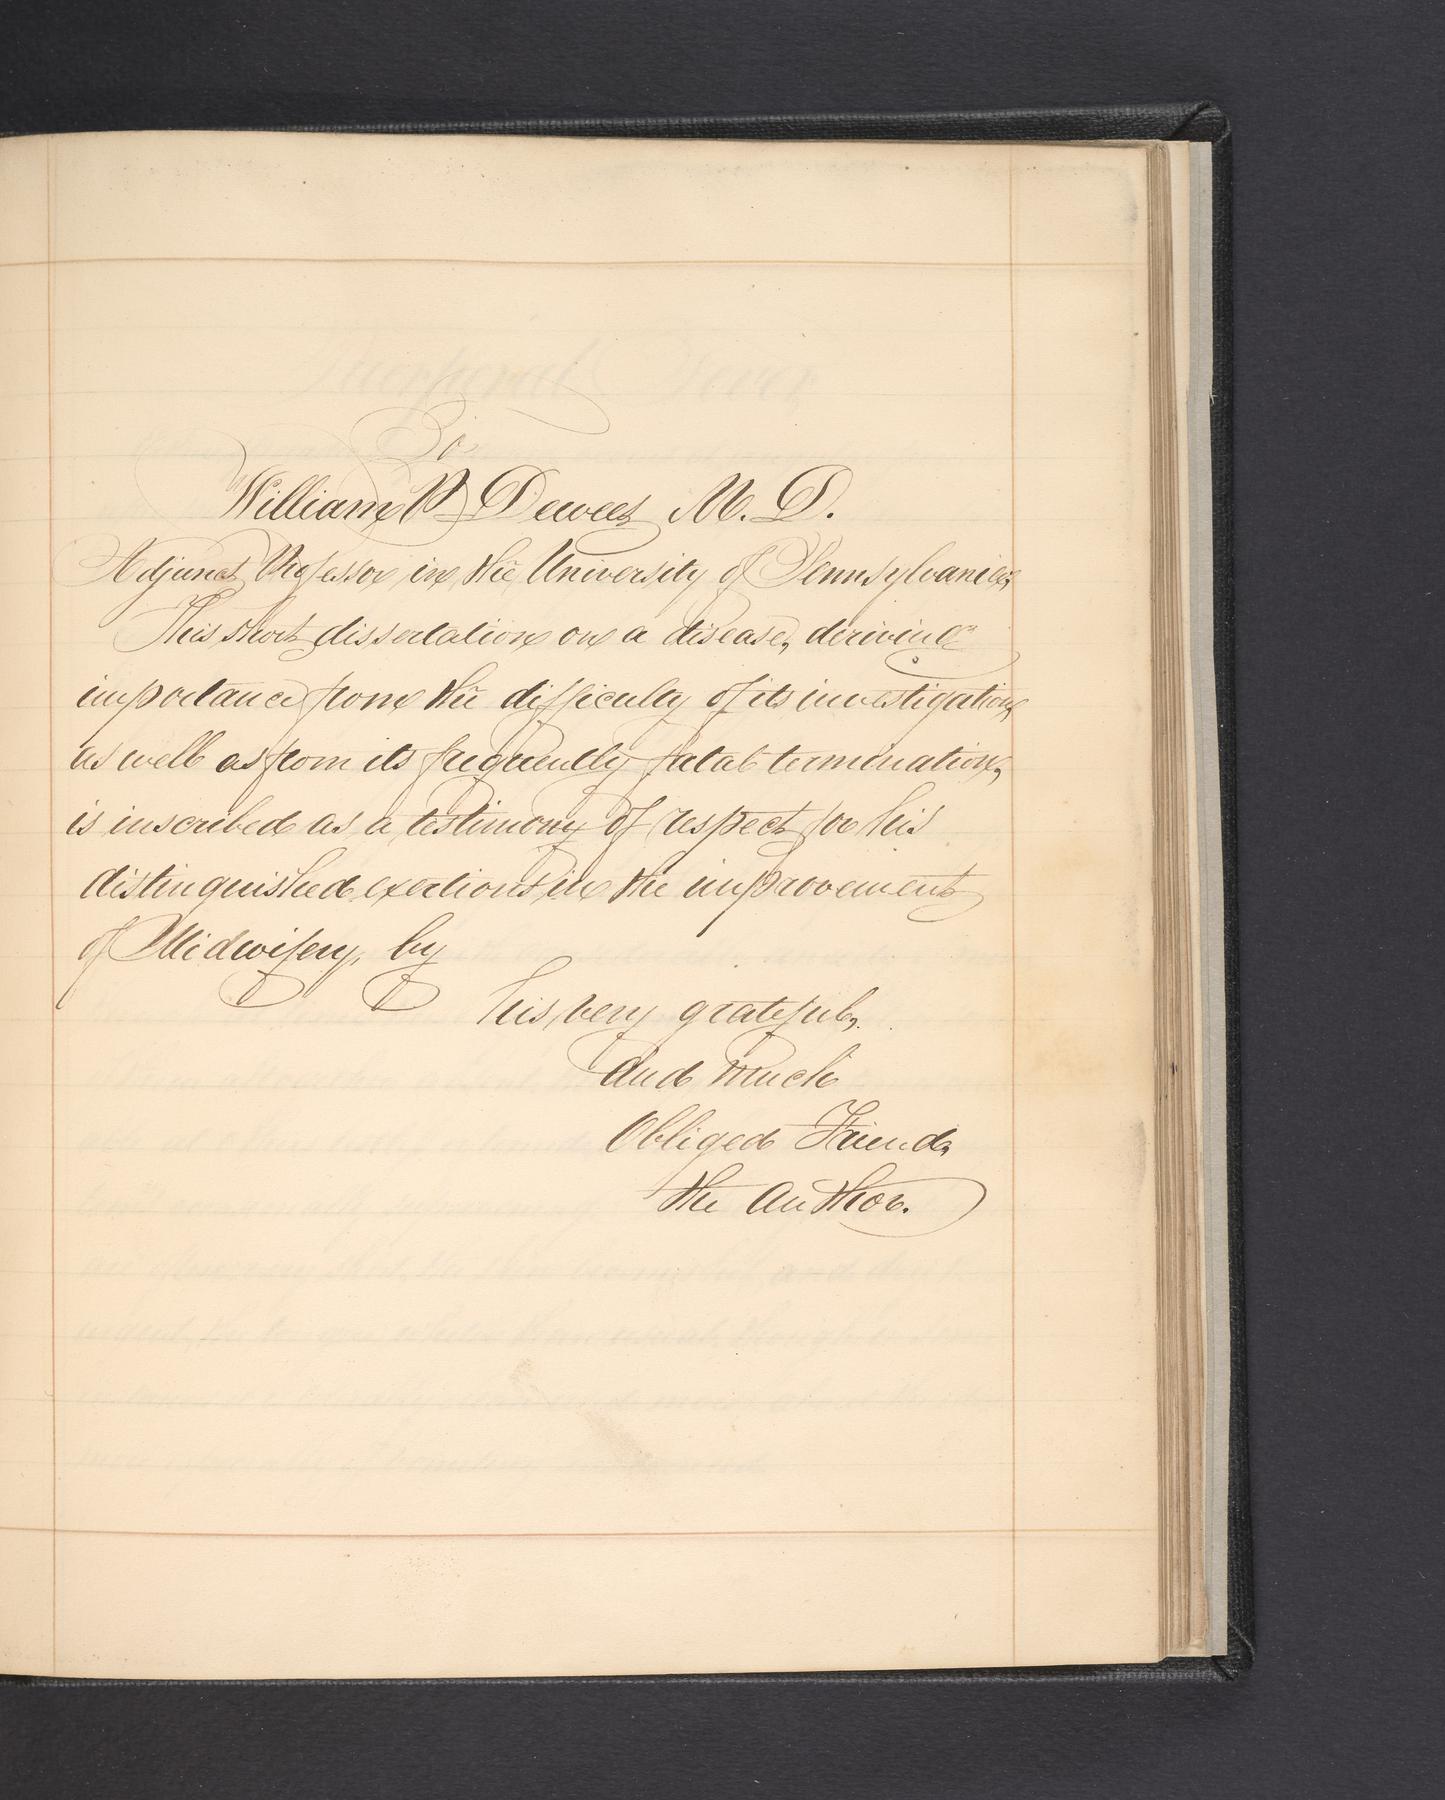 To
William P. Dewees M. D.
Adjunct Professor in the University of Pennsylvania;
This short dissertation on a disease, deriving
importance from the difficulty of its investigation,
as well as from its frequently fatal termination,
is inscribed as a testimony of respect for his
distinguished exertions in the improvement
of Midwifery, by
his very grateful,
And much
Obliged Friend,
the Author.